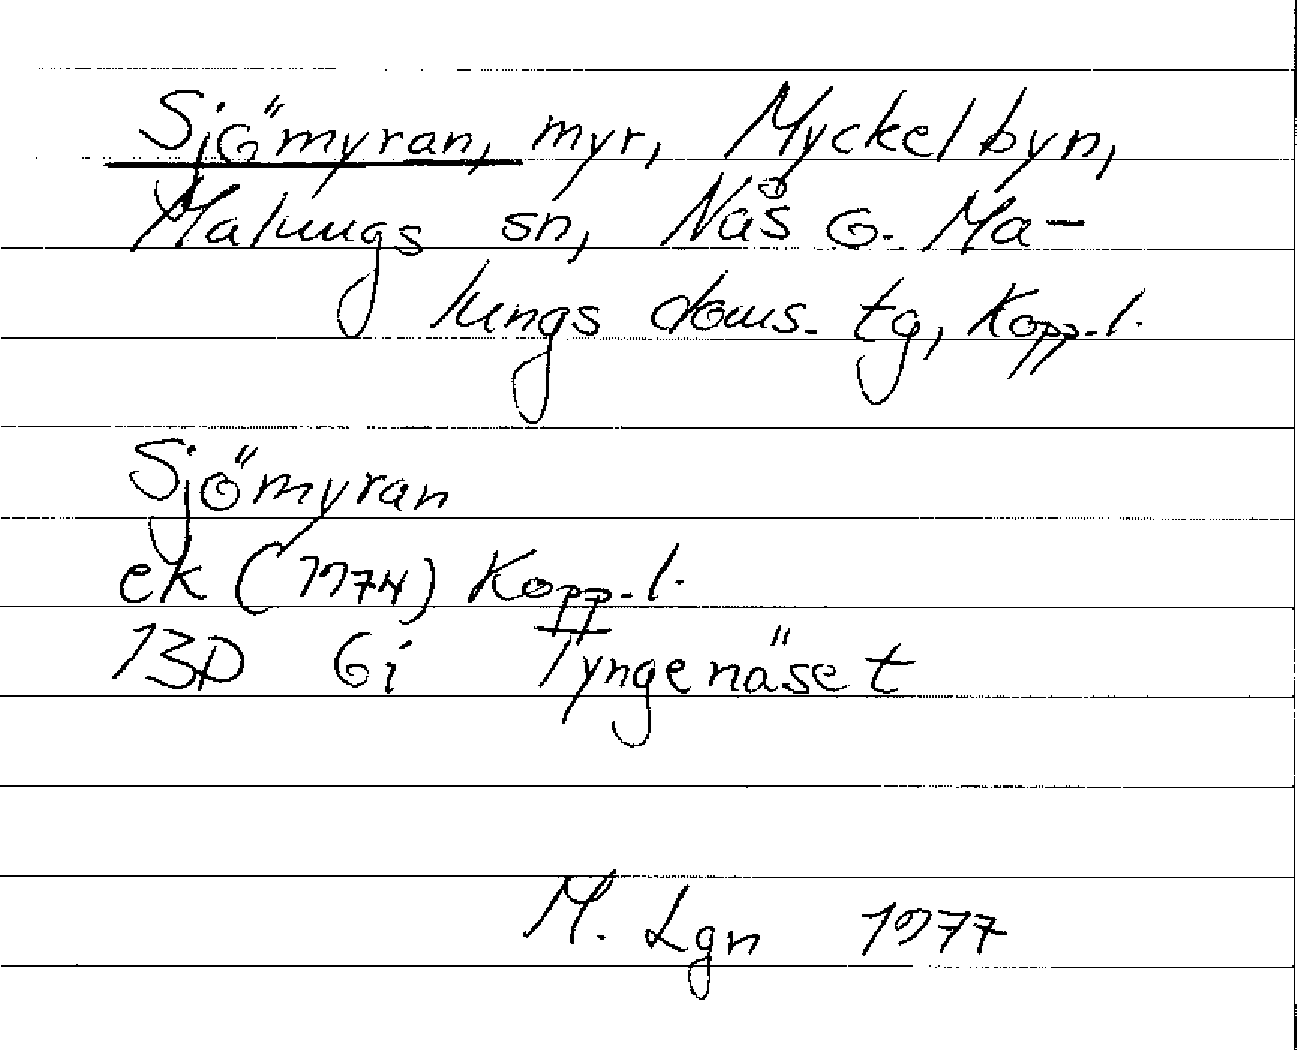 Sjömyran, myr, Myckelbyn,
Malungs sn, Nås o. Ma-
lungs doms. tg, Kopp. l.
Sjömyran
ek (1974) Kopp. l.
13D 6i Tyngenäset
M. Lgn 1977